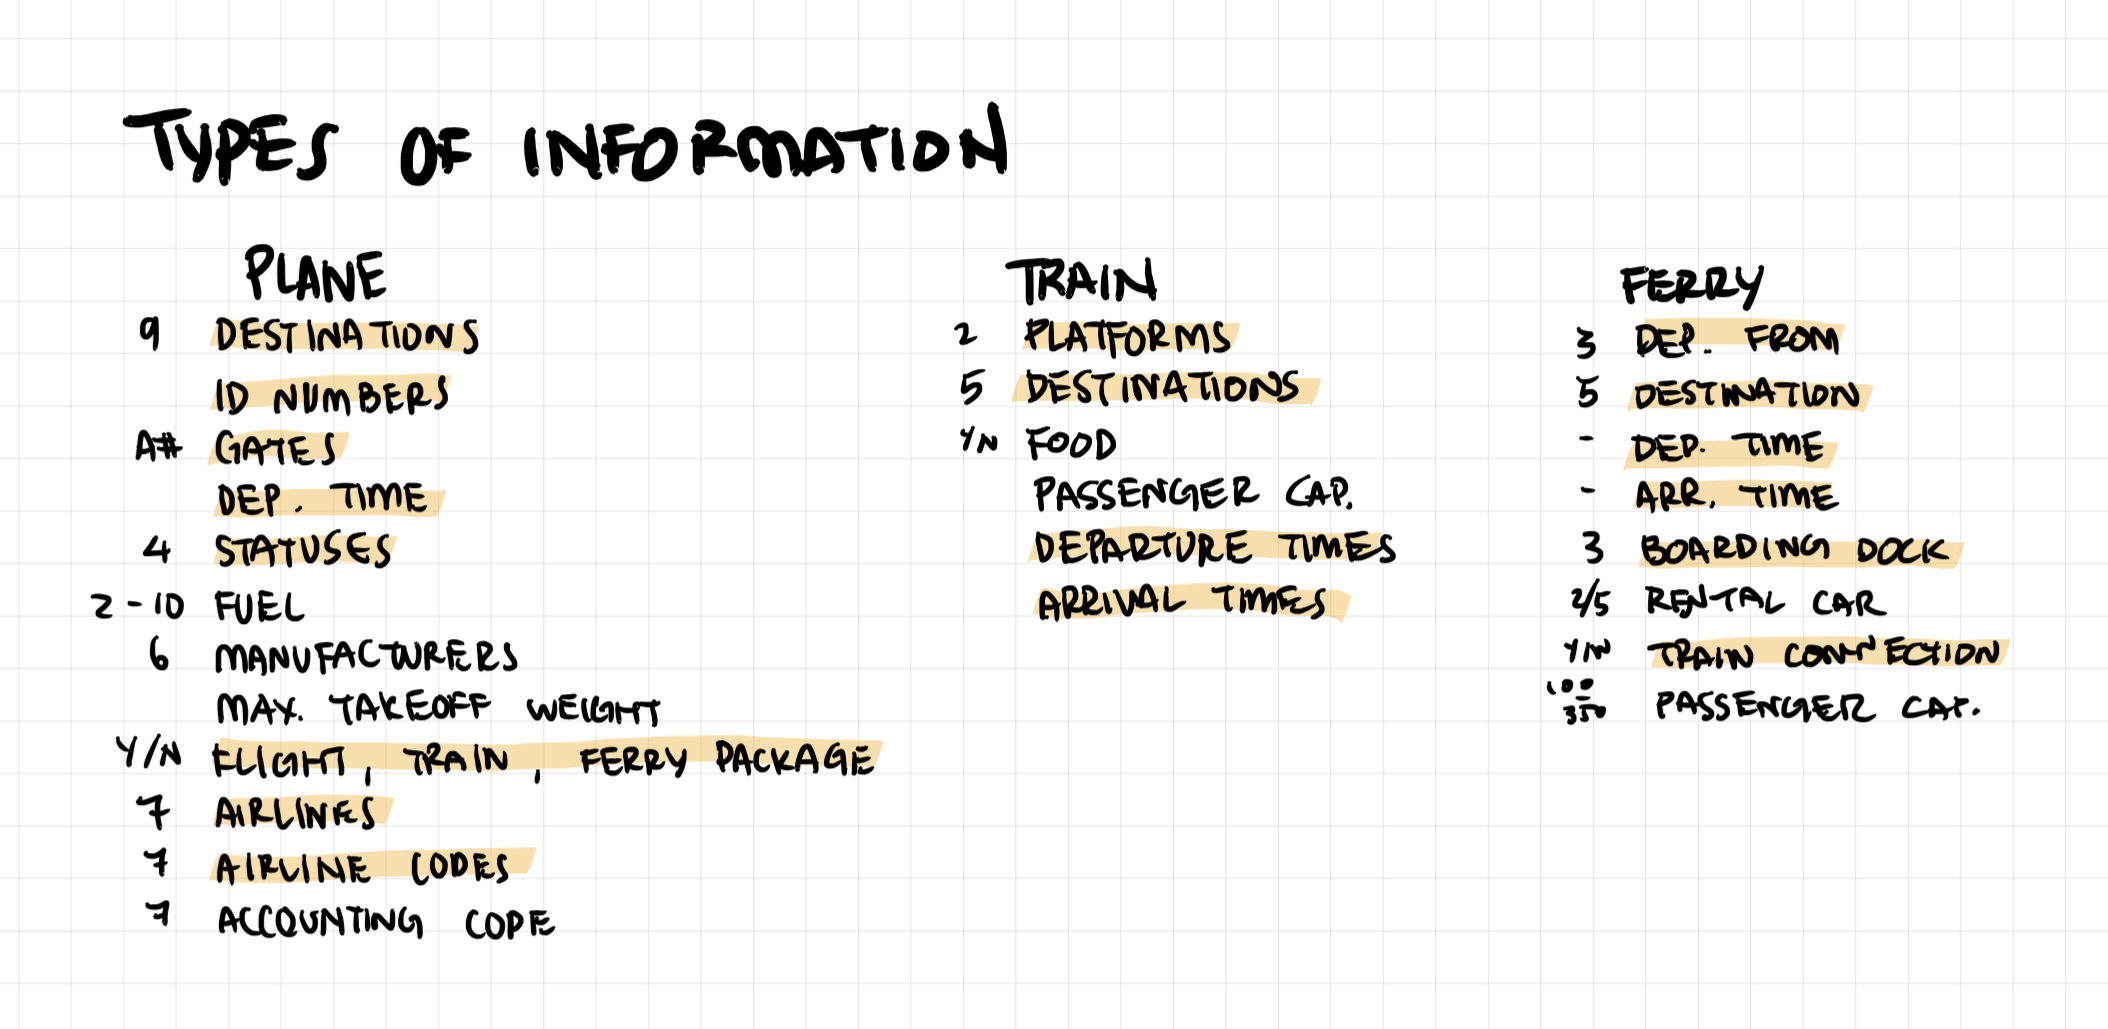 TYPES OF INFORMATION
PLANE
9 DESTINATIONS
ID NUMBERS
A# GATES
DEP. TIME
4 STATUSES
2-10 FUEL
6 MANUFACTURERS
MAX. TAKEOFF WEIGHT
Y/N FLIGHT, TRAIN, FERRY PACKAGE
7 AIRLINES
7 AIRLINE CODES
7 ACCOUNTING CODE
TRAIN
2 PLATFORMS
5 DESTINATIONS
Y/N FOOD
PASSENGER CAP.
DEPARTURE TIMES
ARRIVAL TIMES
FERRY
3 DEP. FROM
5 DESTINATION
- DEP. TIME
- ARR. TIME
3 BOARDING DOCK
2/5 RENTAL CAR
Y/N TRAIN CONNECTION
100-350 PASSENGER CAP.